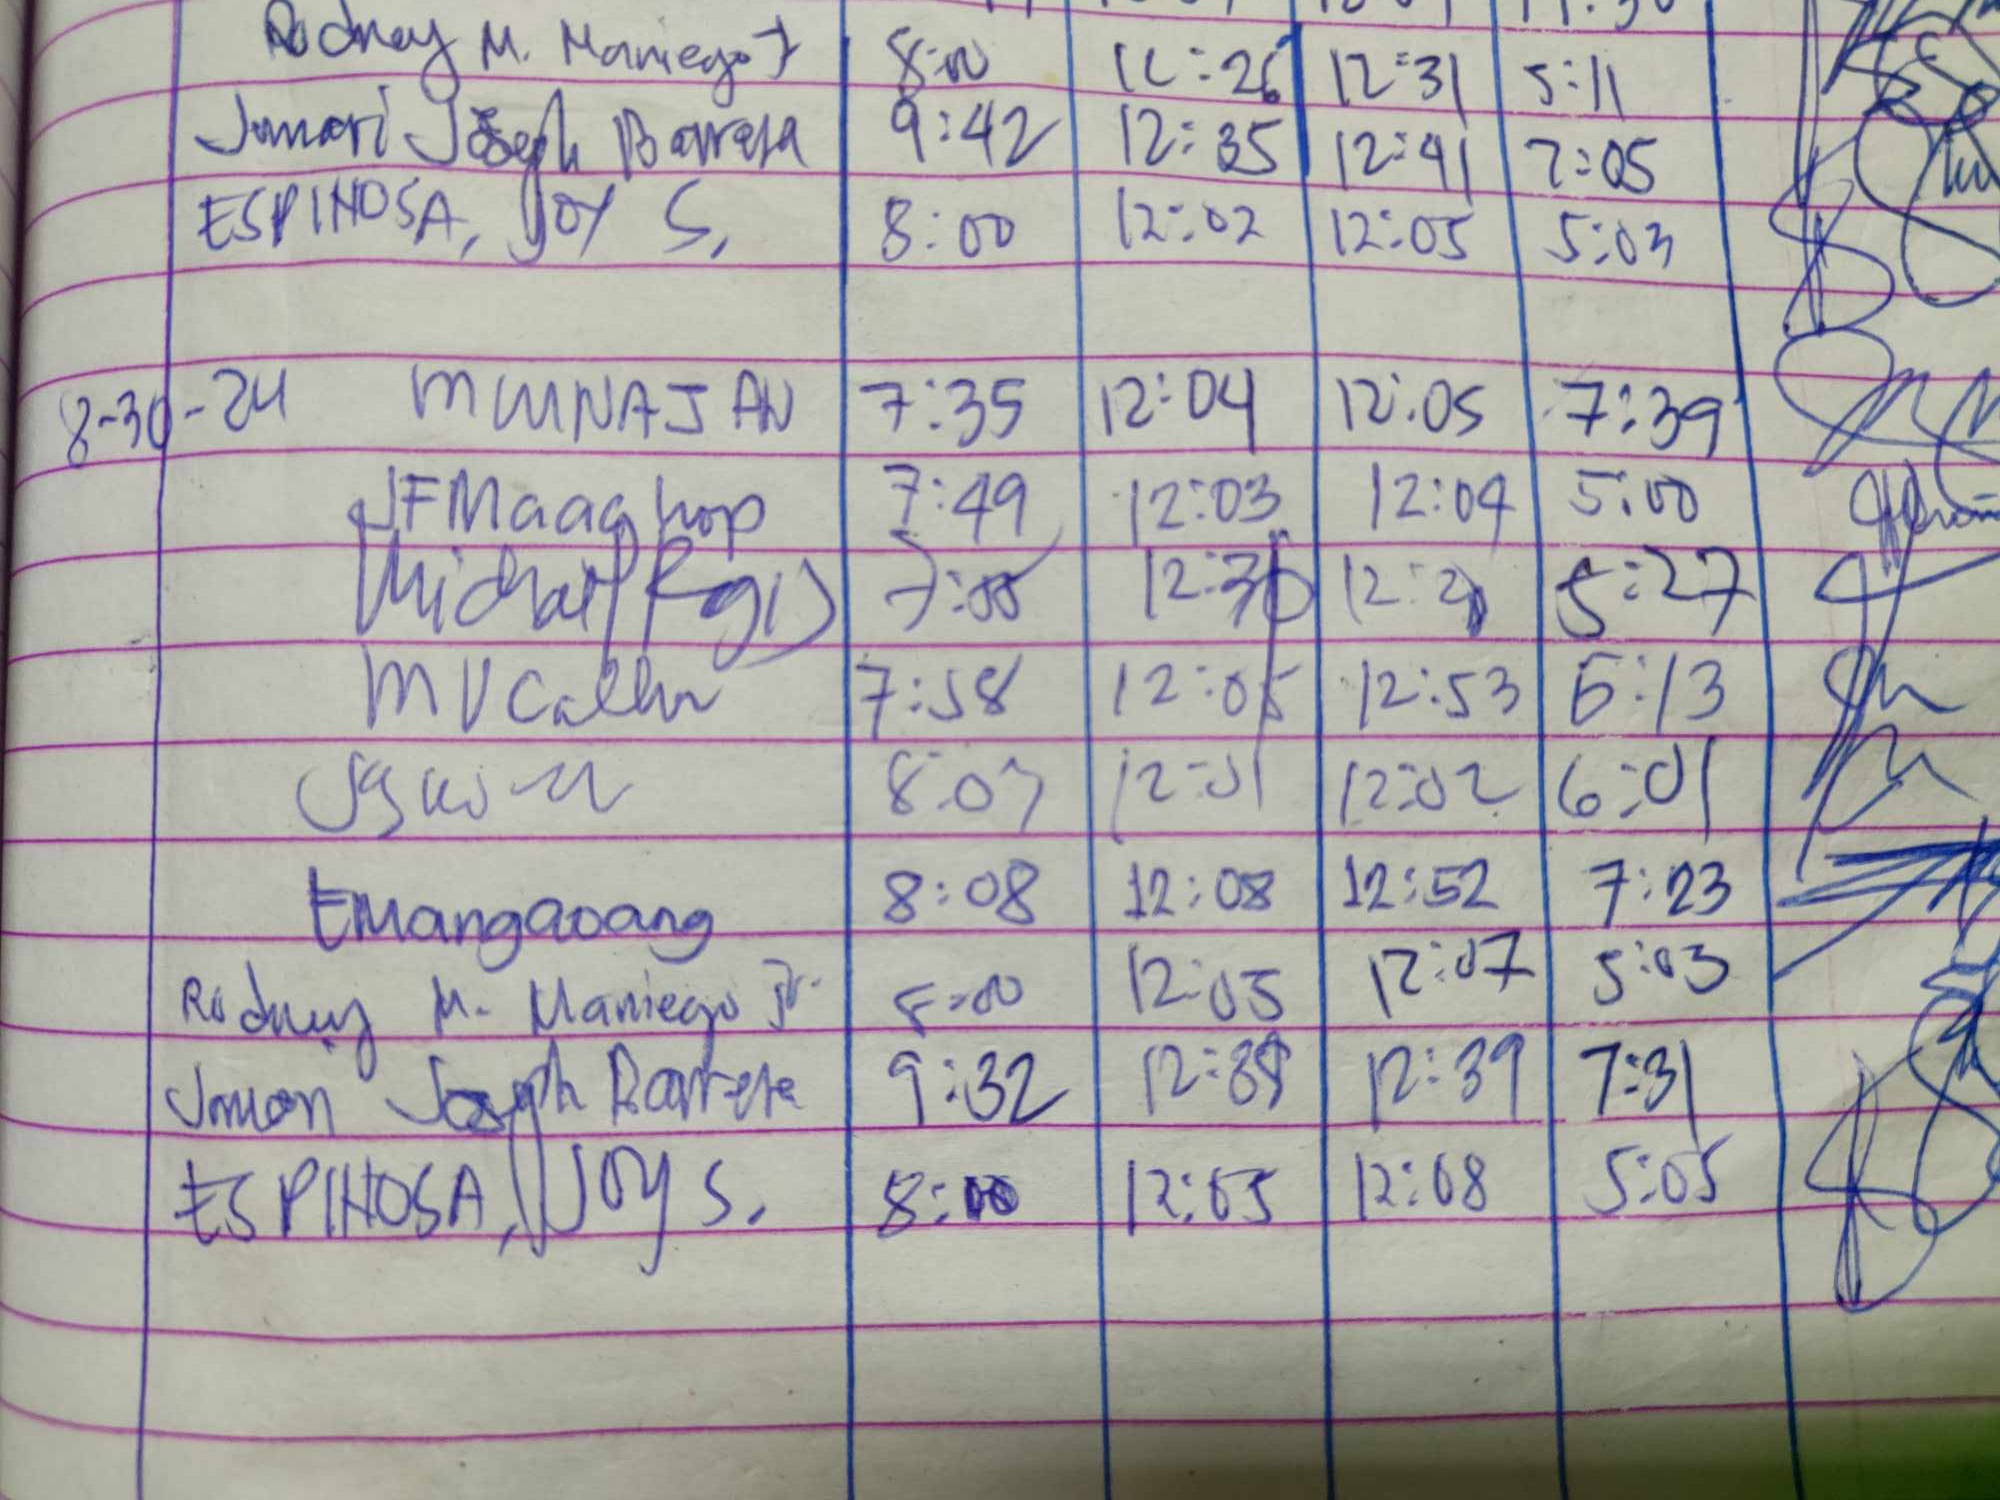 Rodney M. Maniego Jr 8:00 12:26 12:31 5:11
Junari Joseph Barrera 9:42 12:35 12:41 7:05
ESPINOSA, JOY S. 8:00 12:02 12:05 5:03
8-30-24 MMUNAJAN 7:35 12:04 12:05 7:39
JFMaaghop 7:49 12:03 12:04 5:00
7:00 12:30 5:27
7:58 12:05 12:53 5:13
8:07 12:01 12:02 6:01
EMangaoang 8:08 12:08 12:52 7:23
Rodney M. Maniego Jr. 8:00 12:05 12:07 5:03
Junari Joseph Barrera 9:32 12:39 7:31
ESPINOSA, JOY S. 8:00 12:05 12:08 5:05